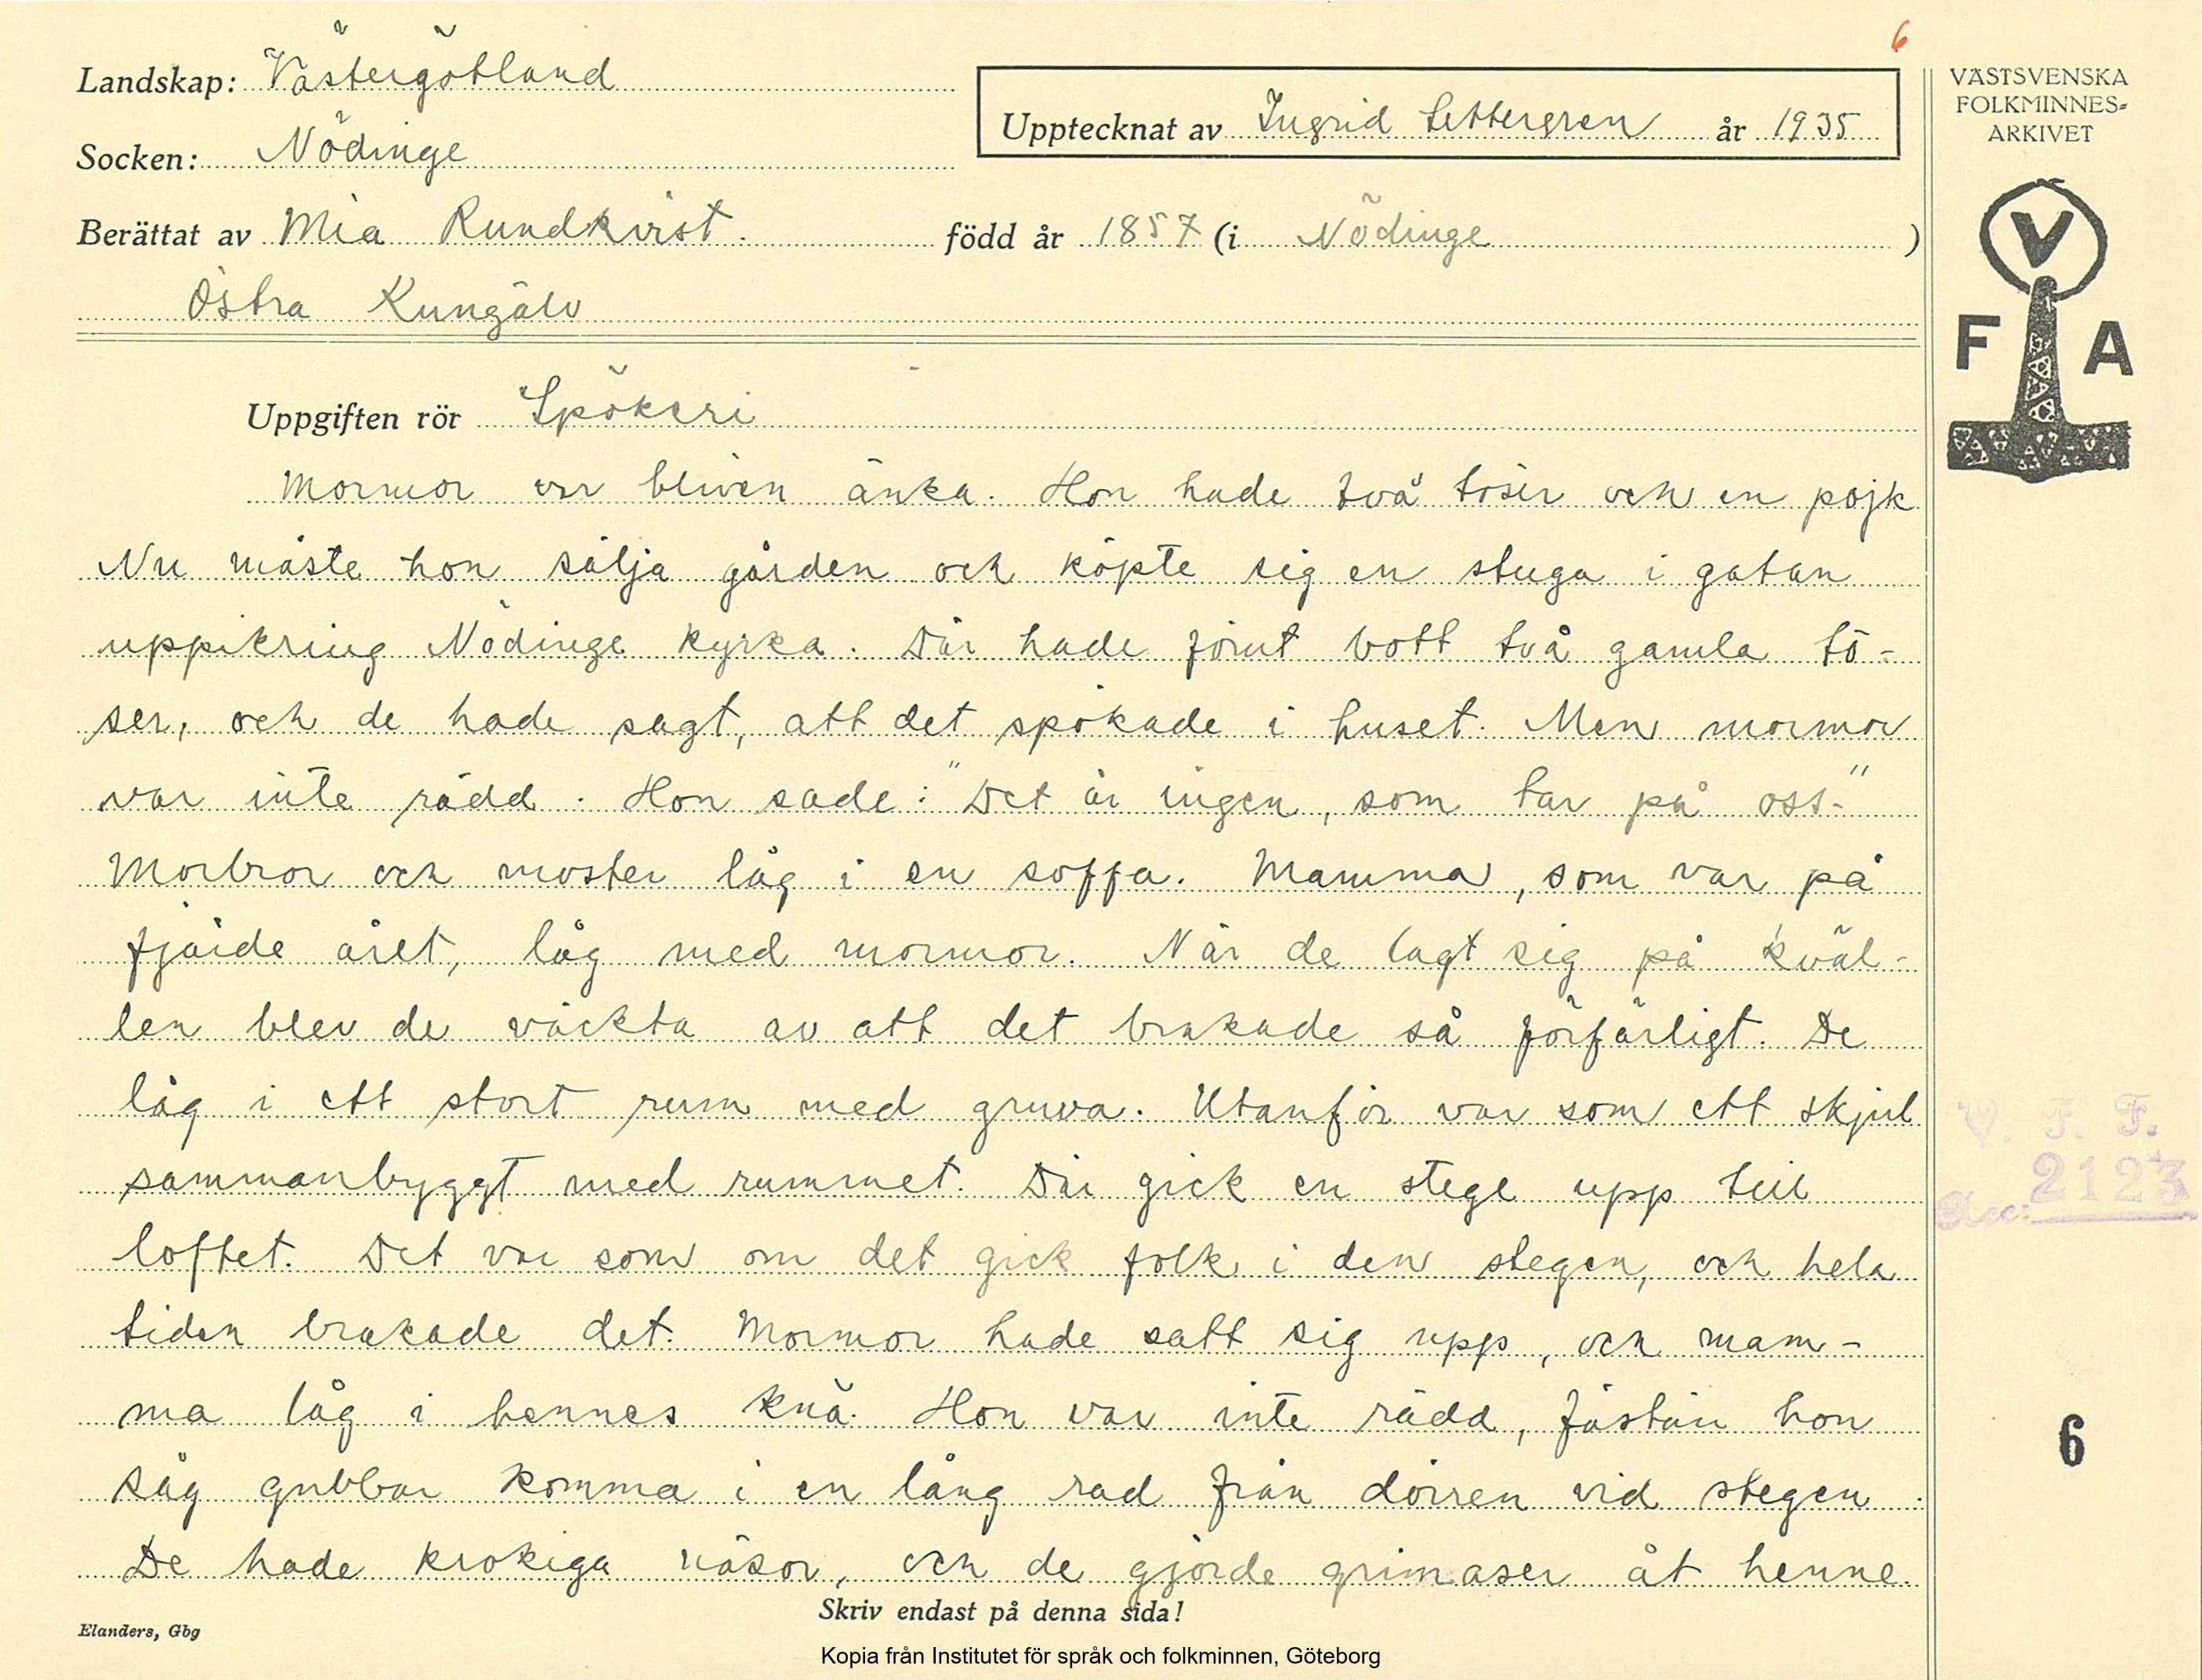 6
Landskap: Västergötland
Socken: Nödinge
Upptecknat av Ingrid Settergren år 1935
VÄSTSVENSKA
FOLKMINNES-
ARKIVET
Berättat av Mia Rundkvist. född år 1857 (i Nödinge )
Östra Kungälv
V
F A
Uppgiften rör Spökeri
Mormor var bliven änka. Hon hade två töser och en pojk
Nu måste hon sälja gården och köpte sig en stuga i gatan
uppikring Nödinge kyrka. Där hade förut bott två gamla tö-
ser, och de hade sagt, att det spökade i huset. Men mormor
var inte rädd. Hon sade: "Det är ingen, som tar på oss."
Morbror och moster låg i en soffa. Mamma, som var på
fjärde året, låg med mormor. När de lagt sig på kväl-
len blev de väckta av att det brakade så förfärligt. De
låg i ett stort rum med gruva. Utanför var som ett skjul
sammanbyggt med rummet. Där gick en stege upp till
loftet. Det var som om det gick folk i den stegen, och hela
tiden brakade det. Mormor hade satt sig upp, och mam-
ma låg i hennes knä. Hon var inte rädd, fästän hon
såg gubbar komma i en lång rad från dörren vid stegen.
De hade krokiga näsor, och de gjorde grimaser åt henne.
V. F. F.
Acc: 2123
6
Skriv endast på denna sida!
Elanders, Gbg
Kopia från Institutet för språk och folkminnen, Göteborg